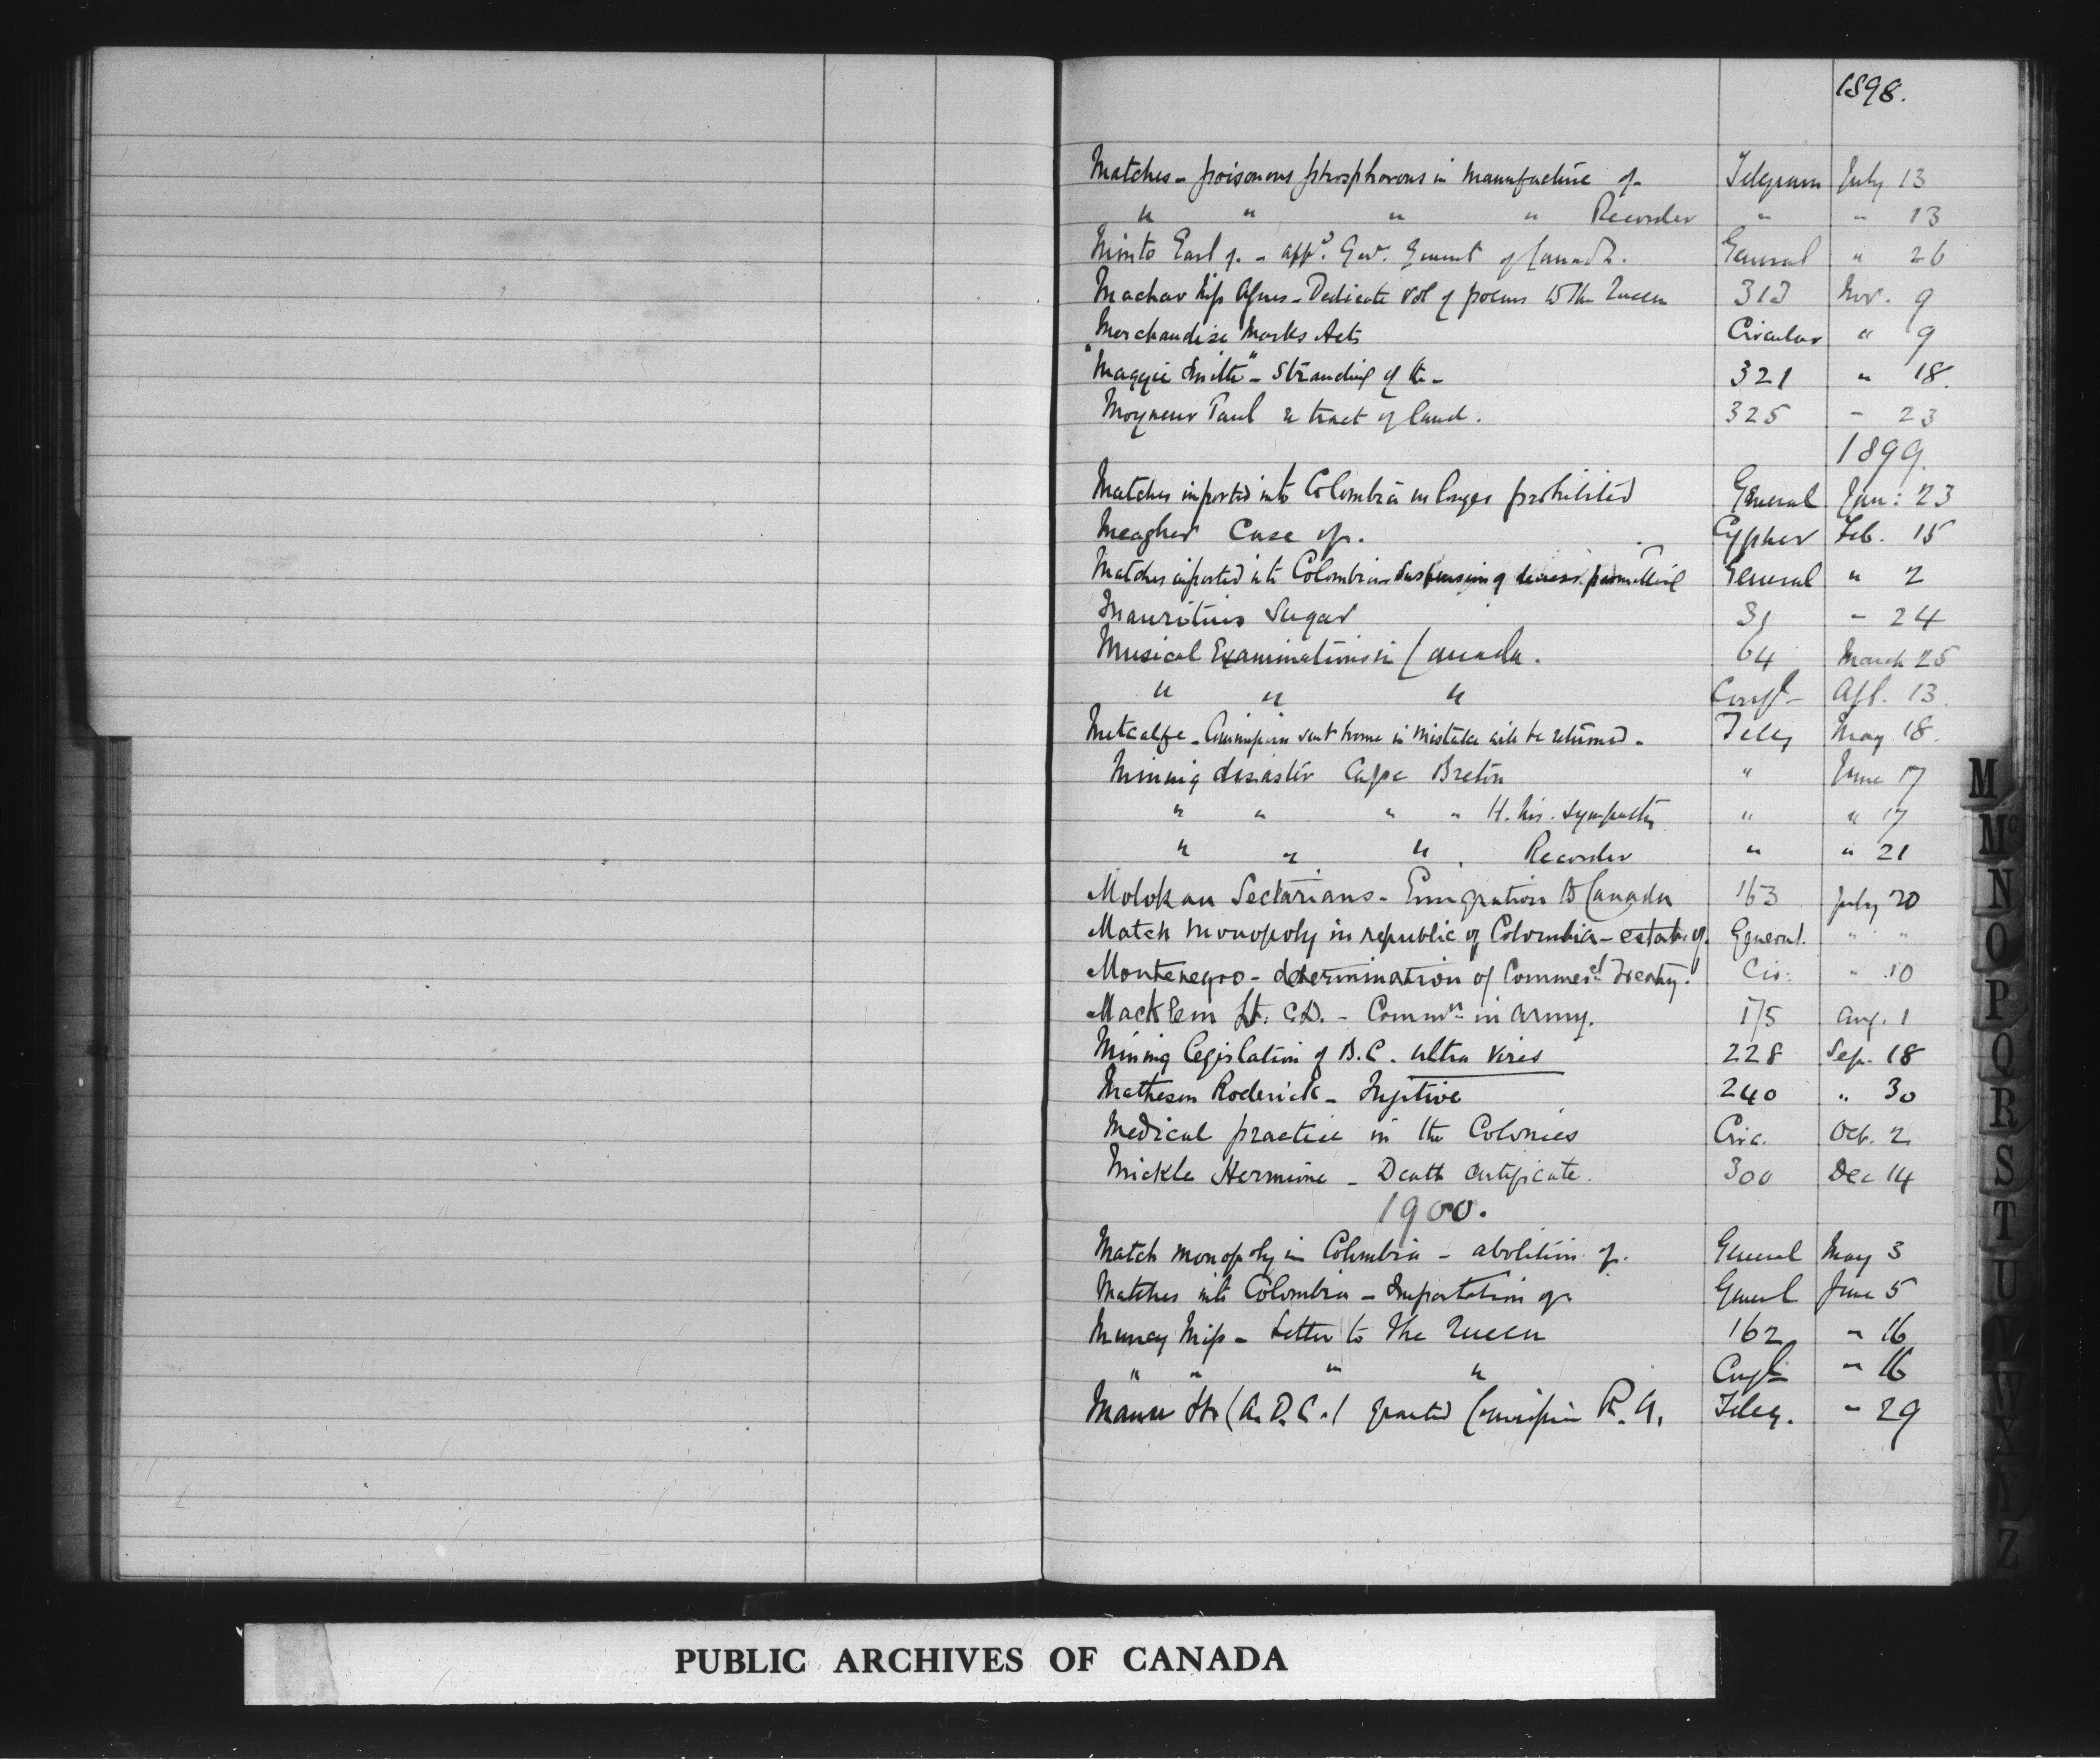 1898.
Matches - poisonous phosphorous in manufacture of - Telegram July 13
" " " " Recorder " " 13
Minto Earl of - app.d Gov. General of Canada. General " 26
Machar Miss Agnes - Dedicate vol of poems to The Queen 313 Nov. 9
Merchandise Marks Acts Circular " 9
"Maggie Smith" - Stranding of the - 321 " 18.
Moyneur Paul re tract of land. 325 - 23
1899.
Matches imported into Colombia no longer prohibited General Jan: 23
Meagher Case of. Cypher Feb. 15
Matches imported into Colombia - suspension of decree permitting General " 2
Mauritius Sugar 31 - 24
Musical Examinations in Canada. 64 March 25
" " " Confl Apl. 13.
Metcalfe - Commission sent home in mistake will be returned - Teleg May 18.
Mining disaster Cape Breton " June 17
" " " " H. M's. sympathy " " 17
" " " . Recorder " " 21
Molokan Sectarians - Emigration to Canada 163 July 20
Match Monopoly in republic of Colombia - estab. of. General. " "
Montenegro - determination of Commercl Treaty. Cir. " 10
Macklem Lt. C.D. - Commn in army. 175 Aug. 1
Mining legislation of B.C. ultra vires 228 Sep. 18
Matheson Roderick - Fugitive 240 " 30
Medical practice in the Colonies Circ. Oct. 2
Mickle Hermine - Death Certificate. 300 Dec 14
1900.
Match monopoly in Colombia - abolition of. General May 3
Matches into Colombia - Importation of General June 5
Miss - Letter to The Queen 162 " 16
" " " " Confl " 16
Lt (A.D.C.) granted Commission R.A. Teleg. " 29
M
Mc
N
O
P
Q
R
S
T
U
W
X
Y
Z
PUBLIC ARCHIVES OF CANADA